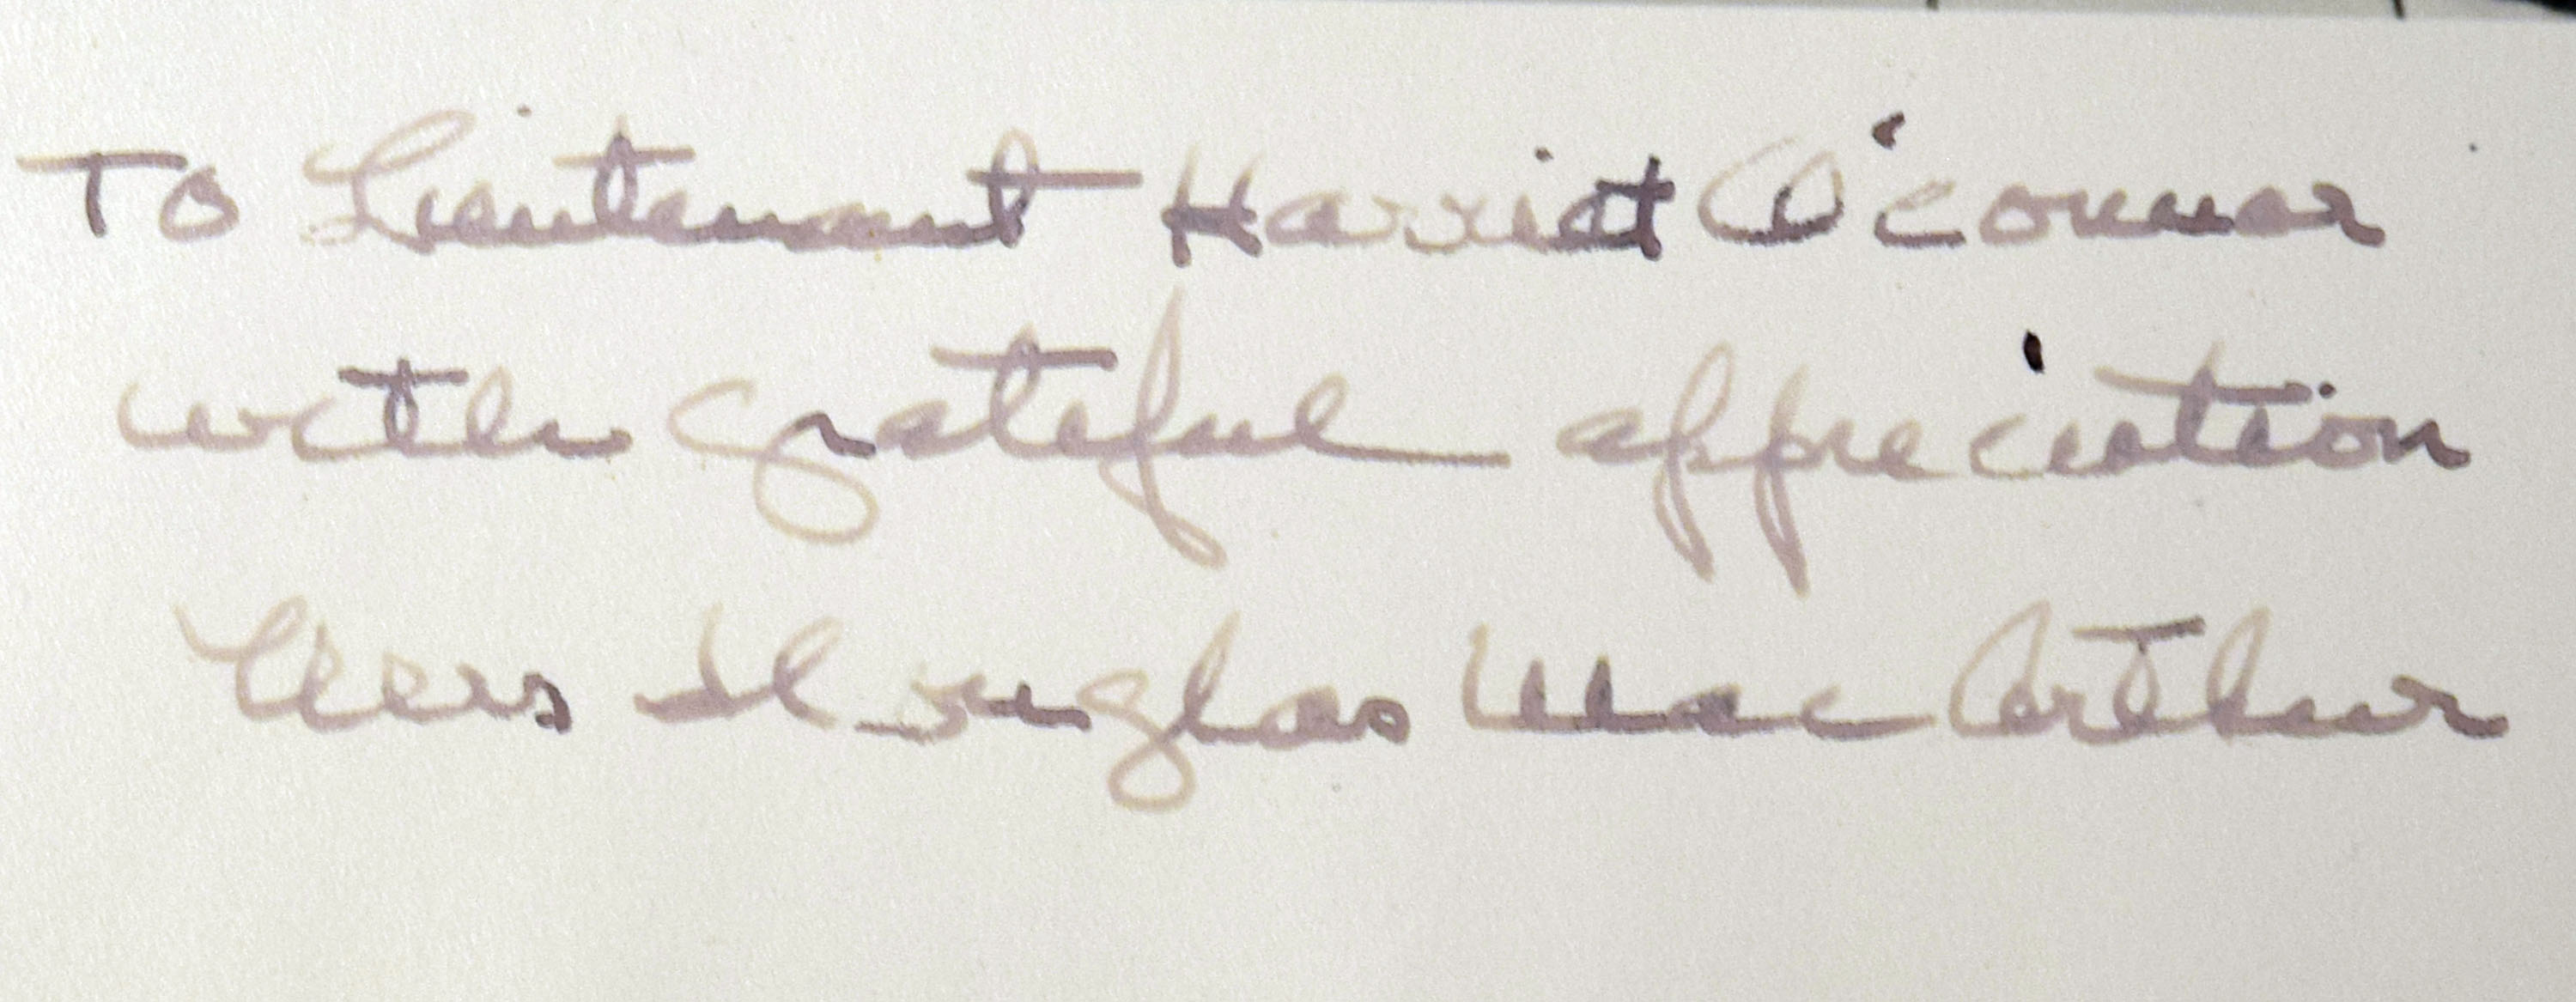 To Lieutenant Harriet O'Connor
with grateful appreciation
Mrs Douglas MacArthur